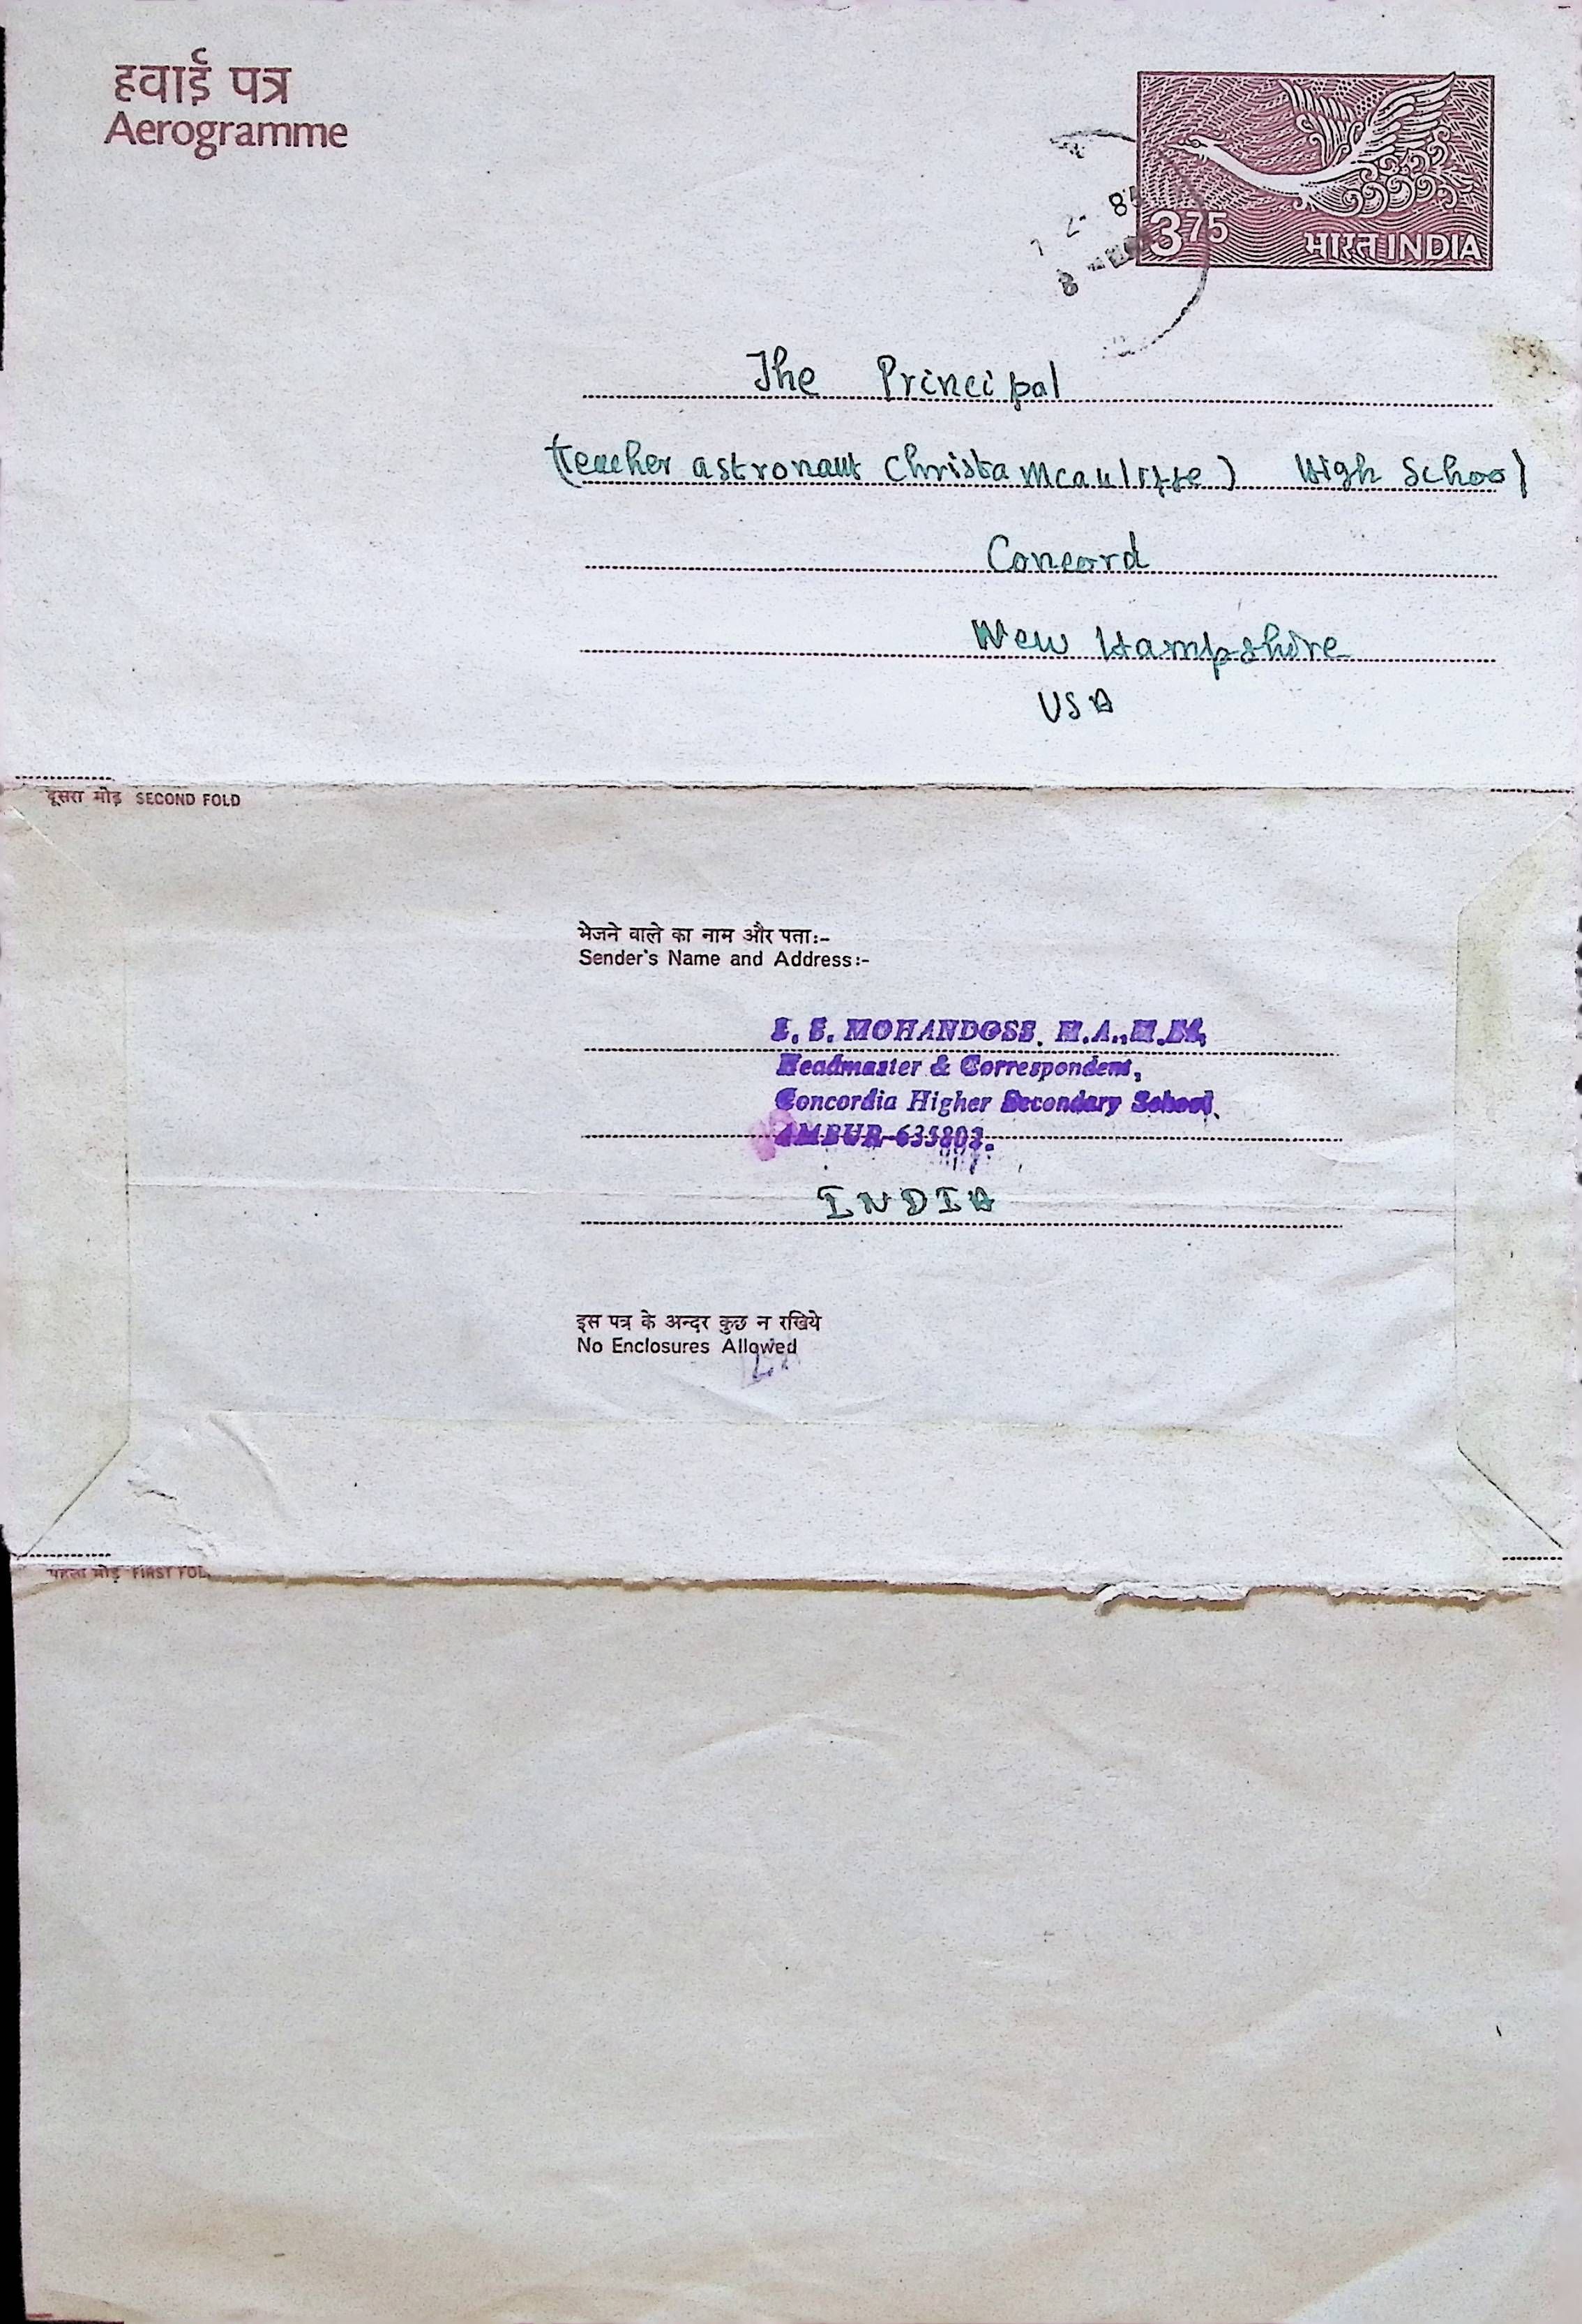 हवाई पत्र
Aerogramme
3 75
भारत INDIA
The Principal
(teacher astronaut Christa Mcauliffe) High School
Concord
New Hampshire
USA
दूसरा मोड़ SECOND FOLD
भेजने वाले का नाम और पता:-
Sender's Name and Address:-
MOHANDOSS, M.A.,
Headmaster & Correspondent,
Concordia Higher Secondary School,
AMBUR-635802.
INDIA
इस पत्र के अन्दर कुछ न रखिये
No Enclosures Allowed
पहला मोड़ FIRST FOL